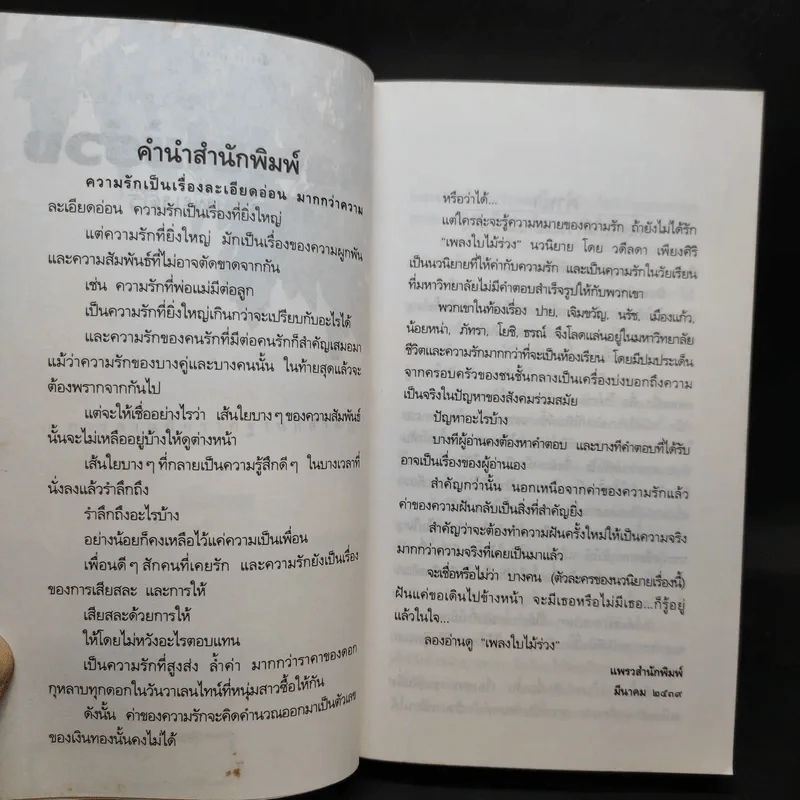 คำนำสำนักพิมพ์
ความรักเป็นเรื่องละเอียดอ่อน มากกว่าความ
ละเอียดอ่อน ความรักเป็นเรื่องที่ยิ่งใหญ่
แต่ความรักที่ยิ่งใหญ่ มักเป็นเรื่องของความผูกพัน
และความสัมพันธ์ที่ไม่อาจตัดขาดจากกัน
เช่น ความรักที่พ่อแม่มีต่อลูก
เป็นความรักที่ยิ่งใหญ่เกินกว่าจะเปรียบกับอะไรได้
และความรักของคนรักที่มีต่อคนรักก็สำคัญเสมอมา
แม้ว่าความรักของบางคู่และบางคนนั้น ในท้ายสุดแล้วจะ
ต้องพรากจากกันไป
แต่จะให้เชื่ออย่างไรว่า เส้นใยบางๆ ของความสัมพันธ์
นั้นจะไม่เหลืออยู่บ้างให้ดูต่างหน้า
เส้นใยบางๆ ที่กลายเป็นความรู้สึกดีๆ ในบางเวลาที่
นั่งลงแล้วรำลึกถึง
รำลึกถึงอะไรบ้าง
อย่างน้อยก็คงเหลือไว้แค่ความเป็นเพื่อน
เพื่อนดีๆ สักคนที่เคยรัก และความรักยังเป็นเรื่อง
ของการเสียสละ และการให้
เสียสละด้วยการให้
ให้โดยไม่หวังอะไรตอบแทน
เป็นความรักที่สูงส่ง ล้ำค่า มากกว่าราคาของดอก
กุหลาบทุกดอกในวันวาเลนไทน์ที่หนุ่มสาวซื้อให้กัน
ดังนั้น ค่าของความรักจะคิดคำนวณออกมาเป็นตัวเลข
ของเงินทองนั้นคงไม่ได้
หรือว่าได้...
แต่ใครล่ะจะรู้ความหมายของความรัก ถ้ายังไม่ได้รัก
"เพลงใบไม้ร่วง" นวนิยาย โดย วดีลดา เพียงศิริ
เป็นนวนิยายที่ให้ค่ากับความรัก และเป็นความรักในวัยเรียน
ที่มหาวิทยาลัยไม่มีคำตอบสำเร็จรูปให้กับพวกเขา
พวกเขาในท้องเรื่อง ปาย, เจิมขวัญ, นรัช, เมืองแก้ว,
น้อยหน่า, ภัทรา, โยชิ, ธรณ์ จึงโลดแล่นอยู่ในมหาวิทยาลัย
ชีวิตและความรักมากกว่าที่จะเป็นห้องเรียน โดยมีปมประเด็น
จากครอบครัวของชนชั้นกลางเป็นเครื่องบ่งบอกถึงความ
เป็นจริงในปัญหาของสังคมร่วมสมัย
ปัญหาอะไรบ้าง
บางทีผู้อ่านคงต้องหาคำตอบ และบางทีคำตอบที่ได้รับ
อาจเป็นเรื่องของผู้อ่านเอง
สำคัญกว่านั้น นอกเหนือจากค่าของความรักแล้ว
ค่าของความฝันกลับเป็นสิ่งที่สำคัญยิ่ง
สำคัญว่าจะต้องทำความฝันครั้งใหม่ให้เป็นความจริง
มากกว่าความจริงที่เคยเป็นมาแล้ว
จะเชื่อหรือไม่ว่า บางคน (ตัวละครของนวนิยายเรื่องนี้)
ฝันแค่ขอเดินไปข้างหน้า จะมีเธอหรือไม่มีเธอ...ก็รู้อยู่
แล้วในใจ...
ลองอ่านดู "เพลงใบไม้ร่วง"
แพรวสำนักพิมพ์
มีนาคม ๒๕๓๙